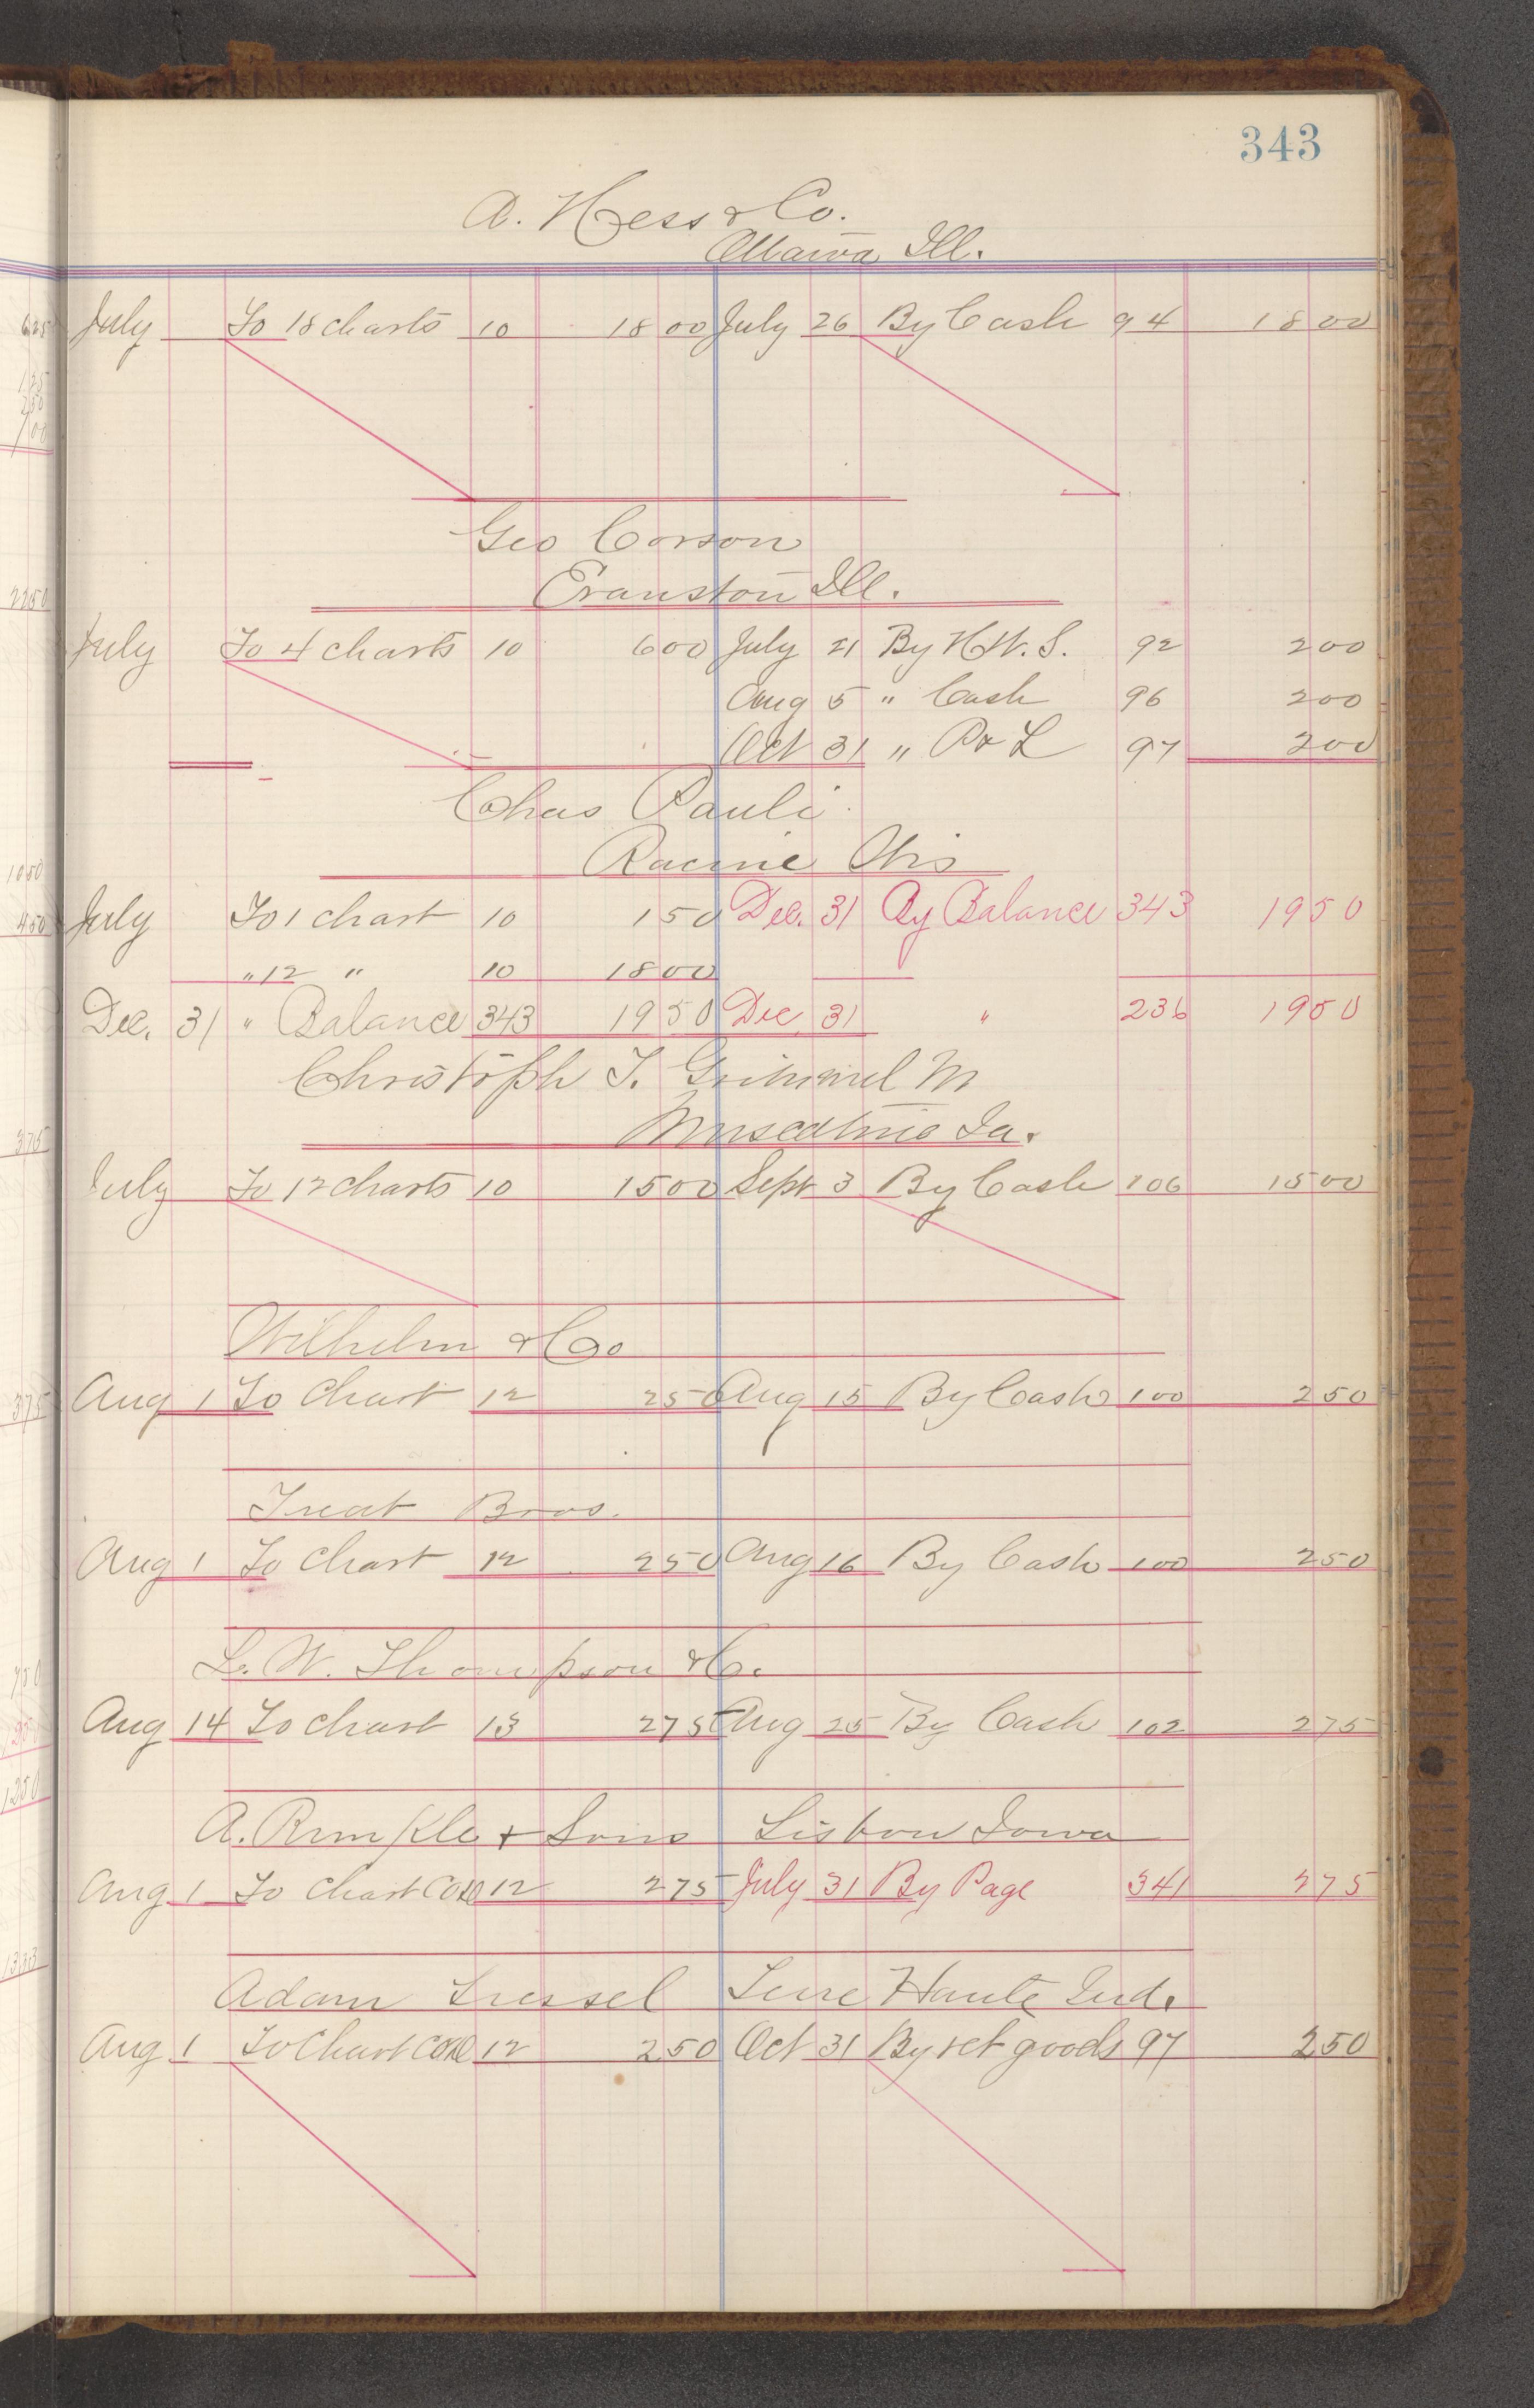 343
A. Hess & Co.
Ottawa Ill.
July To 18 charts 10 18 00 July 26 By Cash 94 18 00
Geo Corson
Evanston Ill.
July To 4 charts 10 6 00 July 21 By H.W.S. 92 2 00
Aug 5 " Cash 96 2 00
Oct 31 " P & L 97 2 00
Chas Pauli
Racine Wis
July To 1 chart 10 1 50 Dec. 31 By Balance 343 19 50
" 12 " 10 18 00
Dec. 31 " Balance 343 19 50 Dec 31 " 236 19 50
Christoph T. M
Muscatine Ia.
July To 12 charts 10 15 00 Sept 3 By Cash 106 15 00
Wilhelm & Co
Aug 1 To Chart 12 2 50 Aug 15 By Cash 100 2 50
Treat Bros.
Aug 1 To Chart 12 2 50 Aug 16 By Cash 100 2 50
L. W. Thompson & Co.
Aug 14 To Chart 13 2 75 Aug 25 By Cash 102 2 75
A. Runkle & Sons Lisbon Iowa
Aug 1 To Chart COD 12 2 75 July 31 By Page 341 2 75
Adam Tressel Terre Haute Ind.
Aug 1 To Chart COD 12 2 50 Oct 31 By ret goods 97 2 50